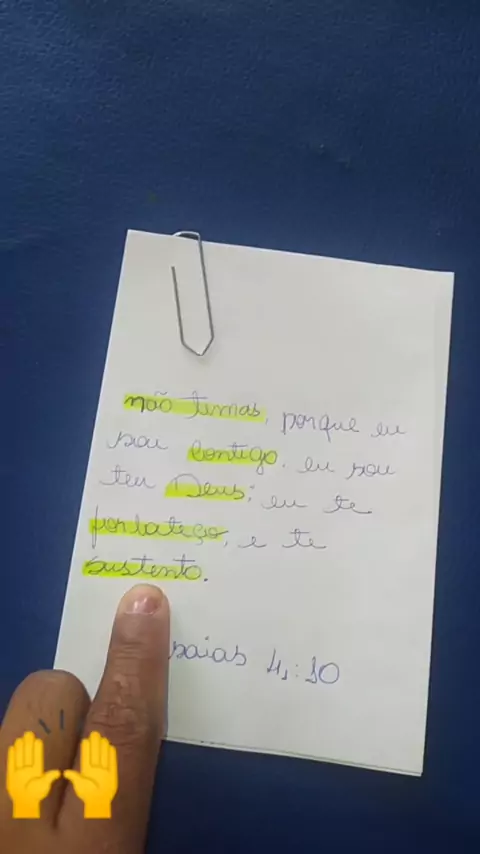 não temas, porque eu
sou contigo. eu sou
teu Deus; eu te
forlateço, e te
sustento.
saias 4,:10